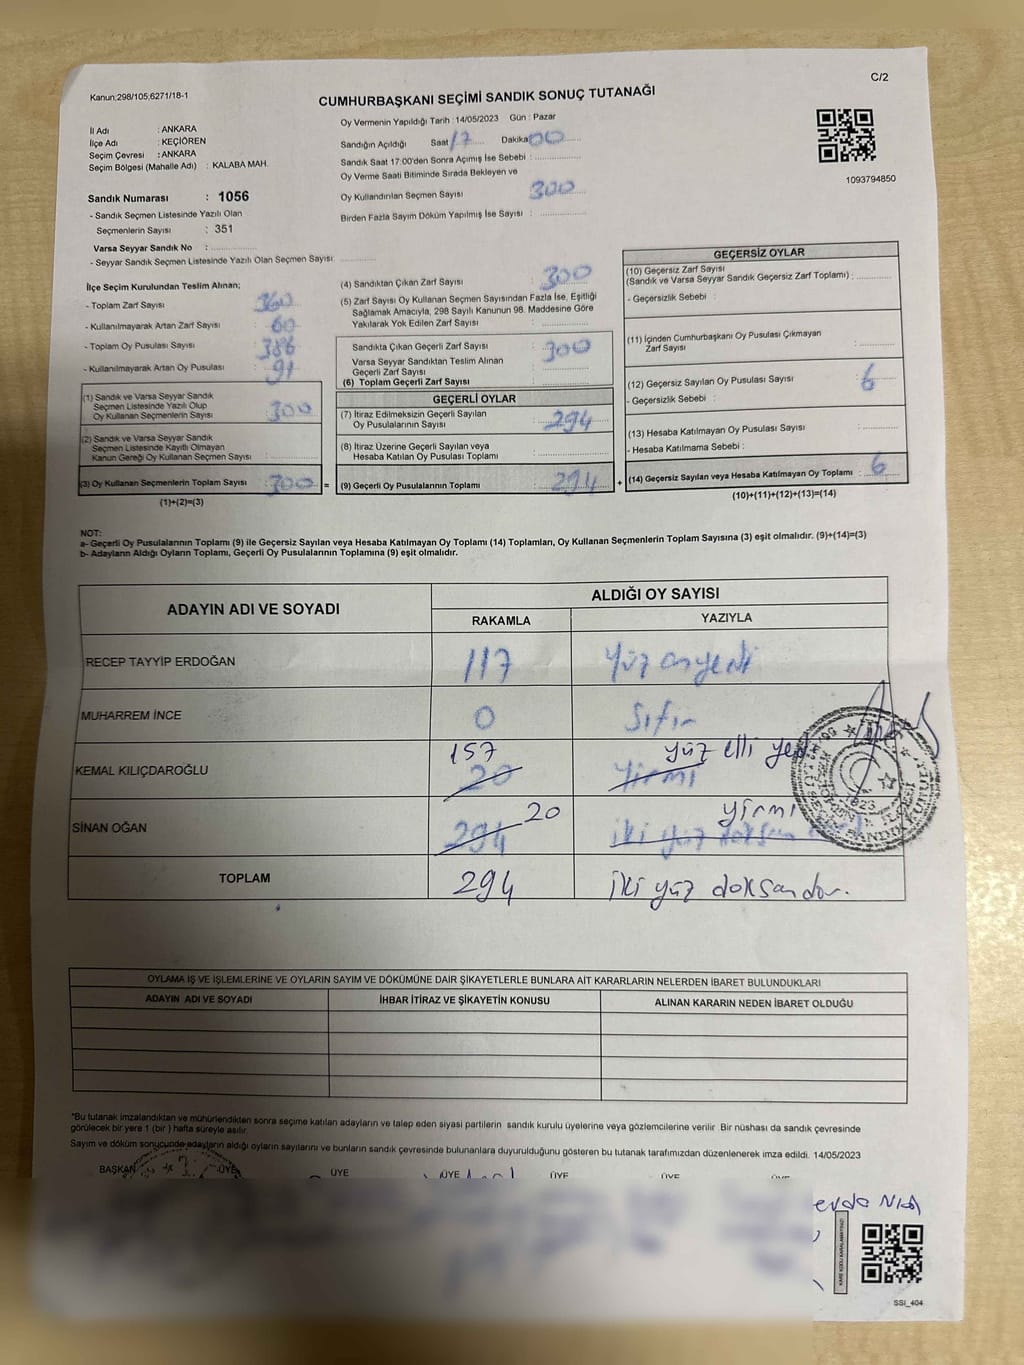 C/2
Kanun:298/105;6271/18-1
CUMHURBAŞKANI SEÇİMİ SANDIK SONUÇ TUTANAĞI
İl Adı : ANKARA
İlçe Adı : KEÇİÖREN
Seçim Çevresi : ANKARA
Seçim Bölgesi (Mahalle Adı) : KALABA MAH.
Sandık Numarası : 1056
- Sandık Seçmen Listesinde Yazılı Olan
Seçmenlerin Sayısı : 351
Varsa Seyyar Sandık No :
- Seyyar Sandık Seçmen Listesinde Yazılı Olan Seçmen Sayısı:
Oy Vermenin Yapıldığı Tarih : 14/05/2023 Gün : Pazar
Sandığın Açıldığı Saat 17 Dakika 00
Sandık Saat 17:00'den Sonra Açımış İse Sebebi :
Oy Verme Saati Bitiminde Sırada Bekleyen ve
Oy Kullandırılan Seçmen Sayısı 300
Birden Fazla Sayım Döküm Yapılmış İse Sayısı :
1093794850
İlçe Seçim Kurulundan Teslim Alınan;
- Toplam Zarf Sayısı : 360
- Kullanılmayarak Artan Zarf Sayısı : 60
- Toplam Oy Pusulası Sayısı : 386
- Kullanılmayarak Artan Oy Pusulası : 91
(1) Sandık ve Varsa Seyyar Sandık
Seçmen Listesinde Yazılı Olup
Oy Kullanan Seçmenlerin Sayısı : 300
(2) Sandık ve Varsa Seyyar Sandık
Seçmen Listesinde Kayıtlı Olmayan
Kanun Gereği Oy Kullanan Seçmen Sayısı :
(3) Oy Kullanan Seçmenlerin Toplam Sayısı : 300 =
(1)+(2)=(3)
(4) Sandıktan Çıkan Zarf Sayısı : 300
(5) Zarf Sayısı Oy Kullanan Seçmen Sayısından Fazla İse, Eşitliği
Sağlamak Amacıyla, 298 Sayılı Kanunun 98. Maddesine Göre
Yakılarak Yok Edilen Zarf Sayısı :
Sandıkta Çıkan Geçerli Zarf Sayısı : 300
Varsa Seyyar Sandıktan Teslim Alınan
Geçerli Zarf Sayısı :
(6) Toplam Geçerli Zarf Sayısı
GEÇERLİ OYLAR
(7) İtiraz Edilmeksizin Geçerli Sayılan
Oy Pusulalarının Sayısı : 294
(8) İtiraz Üzerine Geçerli Sayılan veya
Hesaba Katılan Oy Pusulası Toplamı :
(9) Geçerli Oy Pusulalarının Toplamı : 294 +
GEÇERSİZ OYLAR
(10) Geçersiz Zarf Sayısı
(Sandık ve Varsa Seyyar Sandık Geçersiz Zarf Toplamı) :
- Geçersizlik Sebebi :
(11) İçinden Cumhurbaşkanı Oy Pusulası Çıkmayan
Zarf Sayısı :
(12) Geçersiz Sayılan Oy Pusulası Sayısı : 6
- Geçersizlik Sebebi :
(13) Hesaba Katılmayan Oy Pusulası Sayısı :
- Hesaba Katılmama Sebebi :
(14) Geçersiz Sayılan veya Hesaba Katılmayan Oy Toplamı : 6
(10)+(11)+(12)+(13)=(14)
NOT:
a- Geçerli Oy Pusulalarının Toplamı (9) ile Geçersiz Sayılan veya Hesaba Katılmayan Oy Toplamı (14) Toplamları, Oy Kullanan Seçmenlerin Toplam Sayısına (3) eşit olmalıdır. (9)+(14)=(3)
b- Adayların Aldığı Oyların Toplamı, Geçerli Oy Pusulalarının Toplamına (9) eşit olmalıdır.
ADAYIN ADI VE SOYADI
ALDIĞI OY SAYISI
RAKAMLA YAZIYLA
RECEP TAYYİP ERDOĞAN 117 Yüz onyedi
MUHARREM İNCE 0 Sıfır
157 yüz elli yedi
KEMAL KILIÇDAROĞLU 20 Yirmi
20 yirmi
SİNAN OĞAN 294 iki yüz doksan
TOPLAM 294 iki yüz doksandör.
OYLAMA İŞ VE İŞLEMLERİNE VE OYLARIN SAYIM VE DÖKÜMÜNE DAİR ŞİKAYETLERLE BUNLARA AİT KARARLARIN NELERDEN İBARET BULUNDUKLARI
ADAYIN ADI VE SOYADI İHBAR İTİRAZ VE ŞİKAYETİN KONUSU ALINAN KARARIN NEDEN İBARET OLDUĞU
*Bu tutanak imzalandıktan ve mühürlendikten sonra seçime katılan adayların ve talep eden siyasi partilerin sandık kurulu üyelerine veya gözlemcilerine verilir Bir nüshası da sandık çevresinde
görülecek bir yere 1 (bir) hafta süreyle asılır.
Sayım ve döküm sonucunda adayların aldığı oyların sayılarını ve bunların sandık çevresinde bulunanlara duyurulduğunu gösteren bu tutanak tarafımızdan düzenlenerek imza edildi. 14/05/2023
BAŞKAN ÜYE ÜYE ÜYE ÜYE ÜYE ÜYE
SSİ_404